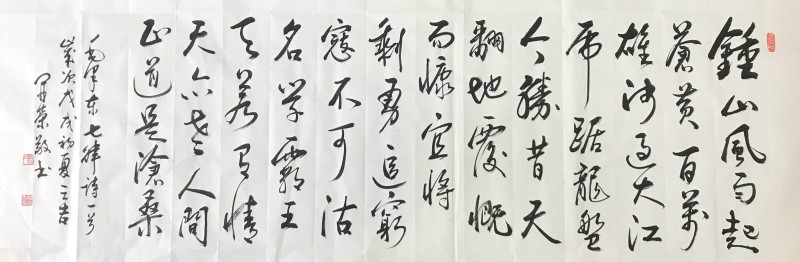 鍾山風雨起
蒼黄百萬
雄師過大江
虎踞龍盤
今勝昔天
翻地覆慨
而慷宜將
剩勇追窮
寇不可沽
名學霸王
天若有情
天亦老人間
正道是滄桑
毛澤東七律詩一首
歲次戊戌初夏之吉
榮敬书